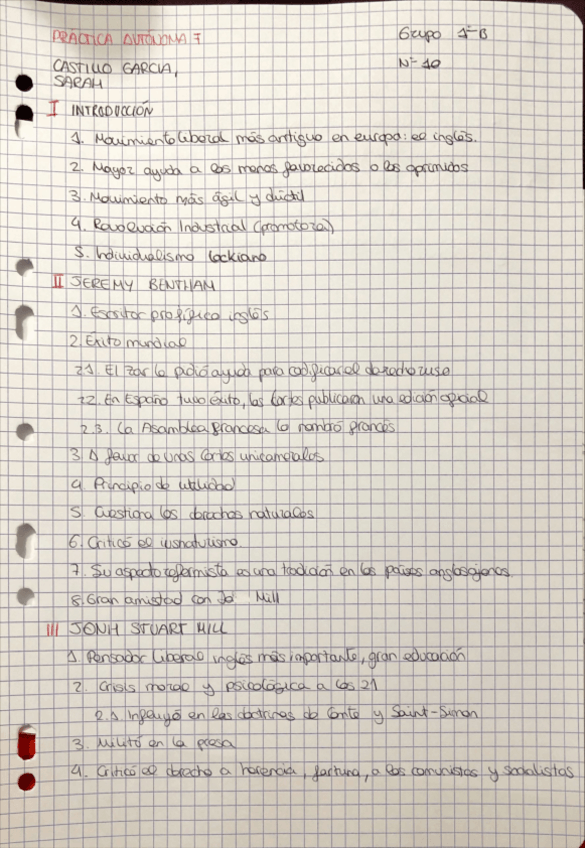 PRÁCTICA AUTÓNOMA 7
Grupo 1º B
CASTILLO GARCIA,
SARAH
Nº 10
I INTRODUCCIÓN
1. Movimiento liberal más antiguo en europa: el inglés.
2. Mayor ayuda a los menos favorecidos o los oprimidos
3. Movimiento más ágil y dúctil
4. Revolución Industrial (promotora)
5. Individualismo lockiano
II JEREMY BENTHAM
1. Escritor prolífico inglés
2. Éxito mundial
2.1. El Zar le pidió ayuda para codificar el derecho ruso
2.2. En España tuvo éxito, las Cortes publicaron una edición oficial
2.3. La Asamblea francesa lo nombró francés
3. A favor de unas Cortes unicamerales
4. Principio de utilidad
5. Cuestiona los derechos naturales
6. Criticó el iusnaturismo
7. Su aspecto reformista es una tradición en los países anglosajones.
8. Gran amistad con Mill
III JONH STUART MILL
1. Pensador liberal inglés más importante, gran educación
2. Crisis moral y psicológica a los 21
2.1 Influyó en las doctrinas de Comte y Saint-Simon
3. Militó en la presa
4. Criticó el derecho a herencia, factura, a los comunistas y socialistas